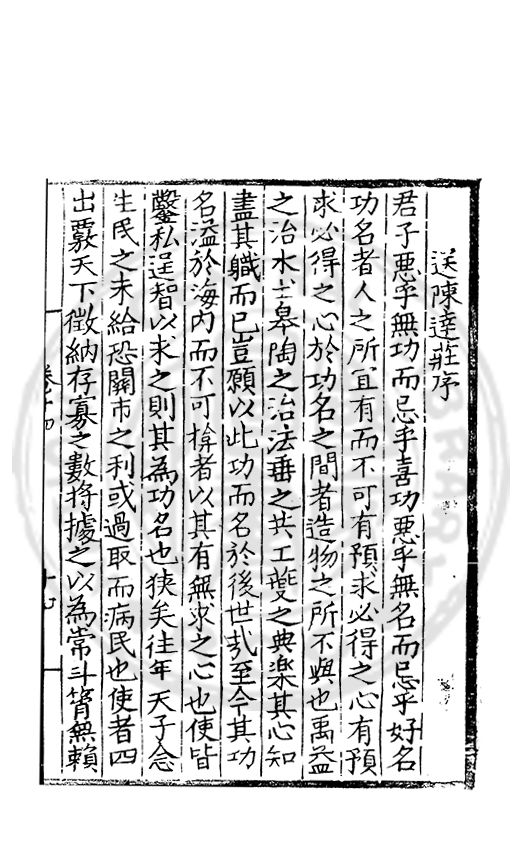 送陳達莊序
君子惡乎無功而忌乎喜功惡乎無名而忌乎好名
功名者人之所宜有而不可有預求必得之心有預
求必得之心於功名之間者造物之所不與也禹益
之治水土皋陶之治法垂之共工夔之典樂其心知
盡其職而已豈願以此功而名於後世哉至今其功
名溢於海内而不可揜者以其有無求之心也使皆
鑿私逞智以求之則其為功名也狹矣往年天子念
生民之未給恐關市之利或過取而病民也使者四
出覈天下徵納存寡之數將據之以為常斗筲無賴
卷十四
十七